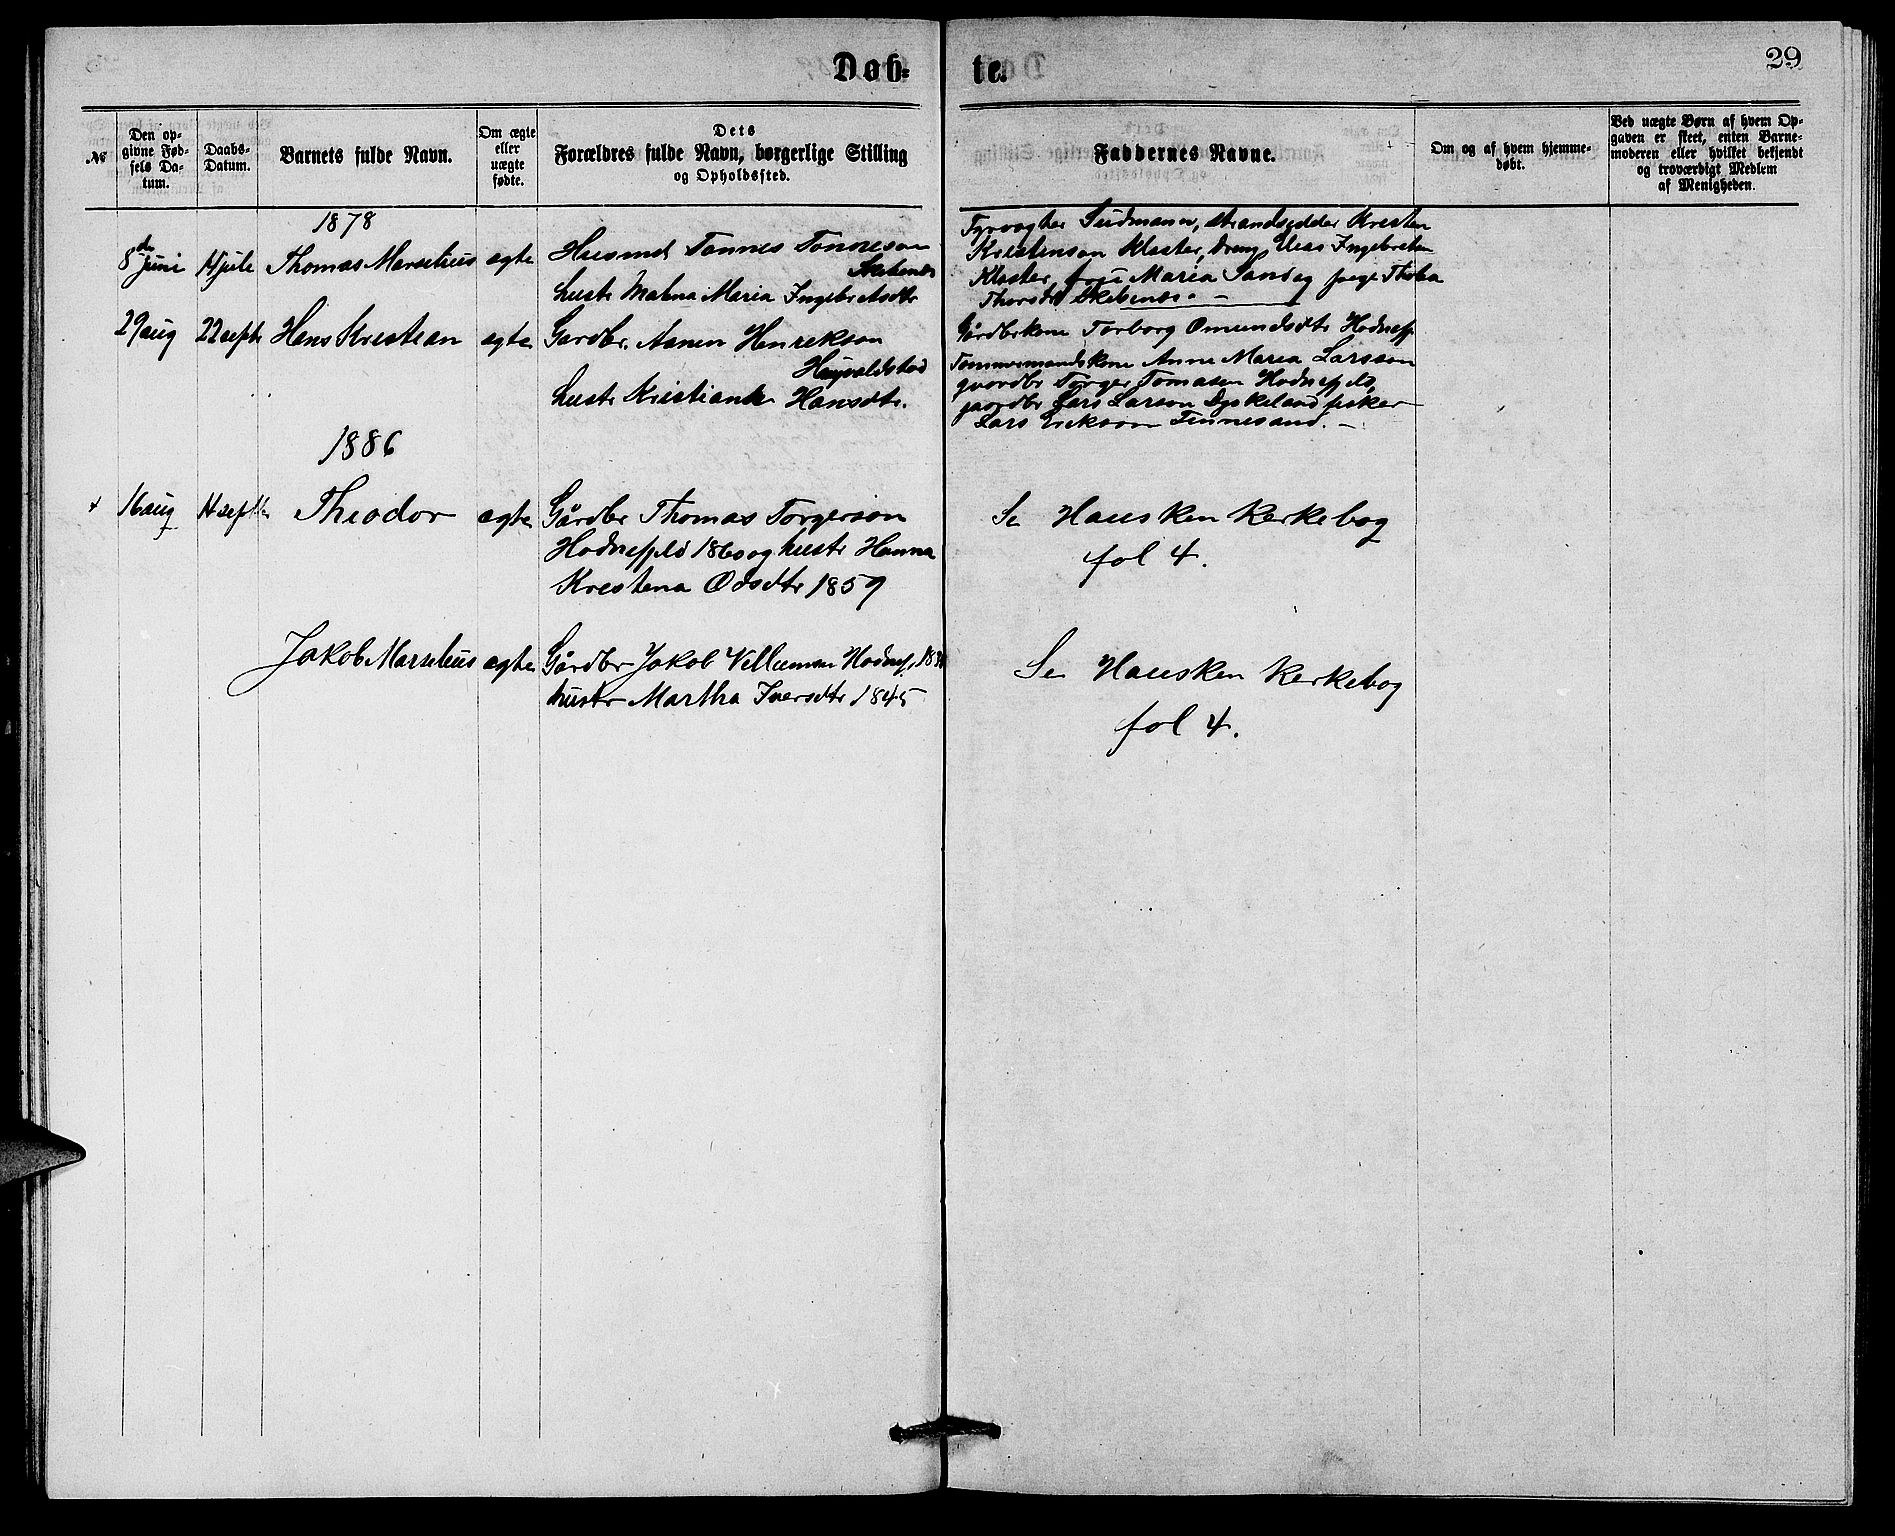 Døb-
te.
29
№
Den op-
givne Fød-
sels Da-
tum.
Daabs-
Datum.
Barnets fulde Navn.
Om ægte
eller
uægte
fødte.
Dets
Forældres fulde Navn, borgerlige Stilling
og Opholdssted.
Faddernes Navne.
Om og af hvem hjemme-
døbt.
Ved uægte Børn af hvem Op-
gaven er skeet, enten Barne-
moderen eller hvilket bekjendt
og troværdigt Medlem
af Menigheden.
1878
8de juni
14 juli
Thomas Marselius
egte
Husmd Tønnes Tønneson
hustr Malena Maria Ingebretsdtr
Fyrvogter Sudmann, strandsidder Kristen
Kristenson Kloster, dreng Elias Ingebretsen
Kloster, Maria Sandøy, pige
29 aug
22 sept
Hans Kristian
egte
Gardbr. Henrekson
hustr Kristiane Hansdtr.
Gårdbrkone Torborg Omundsdtr Hodnefj.
Tømmermandskone Anne Maria Larsson
gaardbr Torger Tomasen Hodnefjeld,
gaardbr Lars Larson Dyskeland fisker
Lars Erikson Finnesand. –
1886
16 aug
14 sept
Theodor
egte
Gårdbr Thomas Torgerson
Hodnefjeld 1860 og hustr Hanna
Kristena Odsdtr 1859
Se Hausken Kerkebog
fol 4.
Jakob Marselius
egte
Gårdbr Jakob Villumsen Hodnefj.
hustr Martha Iversdtr 1845
Se Hausken Kerkebog
fol 4.